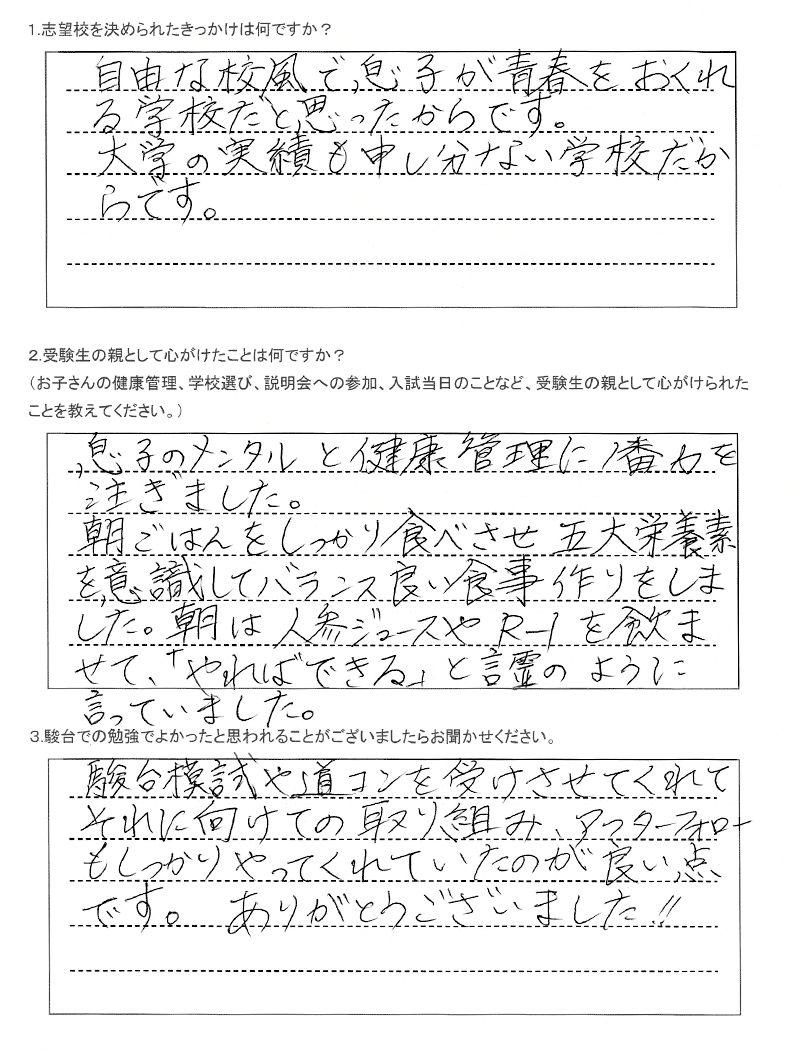 1.志望校を決められたきっかけは何ですか？
自由な校風で、息子が青春をおくれ
る学校だと思ったからです。
大学の実績も申し分ない学校だか
らです。
2.受験生の親として心がけたことは何ですか？
（お子さんの健康管理、学校選び、説明会への参加、入試当日のことなど、受験生の親として心がけられた
ことを教えてください。）
息子のメンタルと健康管理に1番力を
注ぎました。
朝ごはんをしっかり食べさせ五大栄養素
を意識してバランス良い食事作りをしま
した。朝は人参ジュースやR-1を飲ま
せて、「やればできる」と言霊のように
言っていました。
3.駿台での勉強でよかったと思われることがございましたらお聞かせください。
駿台模試や道コンを受けさせてくれて
それに向けての取り組み、アフターフォロー
もしっかりやってくれていたのが良い点
です。ありがとうございました!!